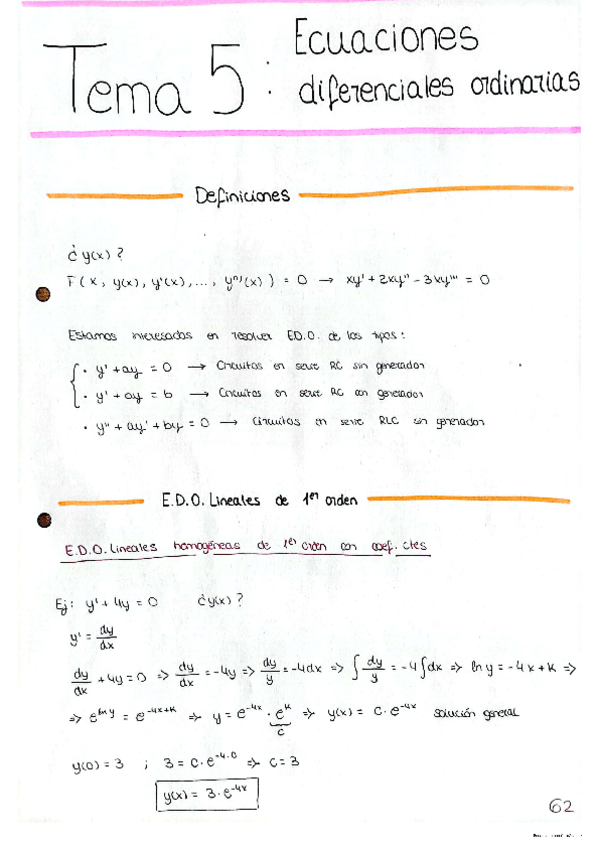 Tema 5: Ecuaciones
diferenciales ordinarias
Definiciones
¿y(x)?
F(x, y(x), y'(x), ..., yⁿ⁾(x)) = 0 → xy' + 2xy'' - 3xy''' = 0
Estamos interesados en resolver E.D.O. de los tipos:
· y' + ay = 0 → Circuitos en serie RC sin generador
· y' + ay = b → Circuitos en serie RC con generador
· y'' + ay' + by = 0 → Circuitos en serie RLC sin generador
E.D.O. Lineales de 1er orden
E.D.O. Lineales homogéneas de 1er orden con coef. ctes
Ej: y' + 4y = 0 ¿y(x)?
y' = dy/dx
dy/dx + 4y = 0 => dy/dx = -4y => dy/y = -4dx => ∫ dy/y = -4 ∫ dx => ln y = -4x + K =>
=> e^(ln y) = e^(-4x+K) => y = e^(-4x) · e^K => y(x) = C · e^(-4x) solución general
C
y(0) = 3 ; 3 = C · e^(-4·0) => C = 3
y(x) = 3 · e^(-4x)
62